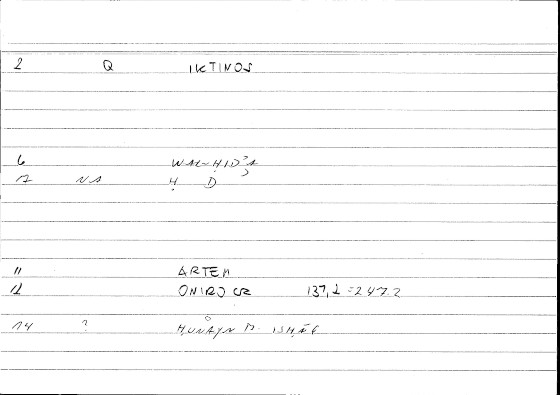 2 Q IKTINOS
6 WAL-ḤIDʾA
12 NA Ḥ D
11 ARTEM
12 ONIROCR 137,2 = 247.2
14 ? ḤUNAYN B. ISḤĀḲ